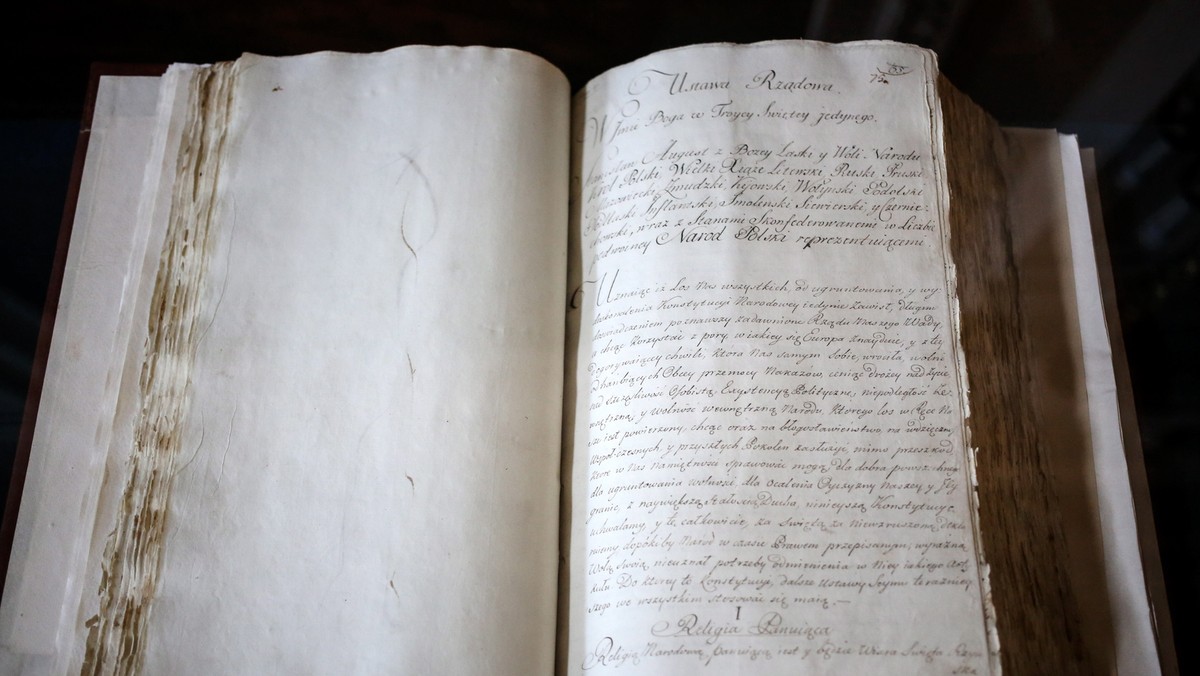 Ustawa Rządowa.
W Imie Boga w Troycy Swiętey jedynego.
Stanisław August z Bozey Łaski y Woli Narodu
Krol Polski, Wielki Xiąże Litewski, Ruski Pruski
Mazowiecki, Zmudzki, Kijowski, Wołyński, Podolski
Podlaski Inflantski, Smolenski Siewierski, y Czernie-
chowski, wraz z Stanami Skonfederowanemi w Liczbie
podwoiney Narod Polski reprezentuiącemi.
Uznaiąc iż Los Nas wszystkich, od ugruntowania, y wy
doskonalenia Konstytucyi Narodowey iedynie zawisł, długim
doswiadczeniem poznawszy zadawnione Rządu Naszego Wady,
a chcąc korzystać z pory, w iakiey się Europa znayduie, y z tey
Dogorywaiącey chwili, ktora Nas samym Sobie wrociła, wolni
od hanbiących Obcey przemocy Nakazow, ceniąc drożey nad życie
nad szczęsliwość Osobistą, Exystencyą Polityczną, niepodległość ze-
wnętrzną, y wolność wewnętrzną Narodu, ktorego los w Ręce Na-
sze iest powierzony, chcąc oraz na błogosławieństwo, na wdzięcznosc
Wspoł-czesnych, y przyszłych Pokolen zasłużyć, mimo przeszkod,
ktore w Nas Namiętności sprawować mogą, dla dobra powszechnego
dla ugruntowania wolności, dla ocalenia Oyczyzny Naszey, y Jey
granic, z naywiększą stałością Ducha, ninieyszą Konstytucyę
uchwalamy, y tę całkowicie, za Swiętą, za Niewzruszoną, dekla
ruiemy dopokiby Narod w czasie Prawem przepisanym, wyraźną
Wolą Swoią nieuznał potrzeby odmienienia w Niey iakiego Arty-
kułu. Do ktorey to Konstytucyi, dalsze Ustawy Seymu te raźniey
szego we wszystkim stosować się maią.—
I
Religia Panuiąca
Religią Narodową, panuiącą iest y będzie Wiara Swięta Rzym
ska